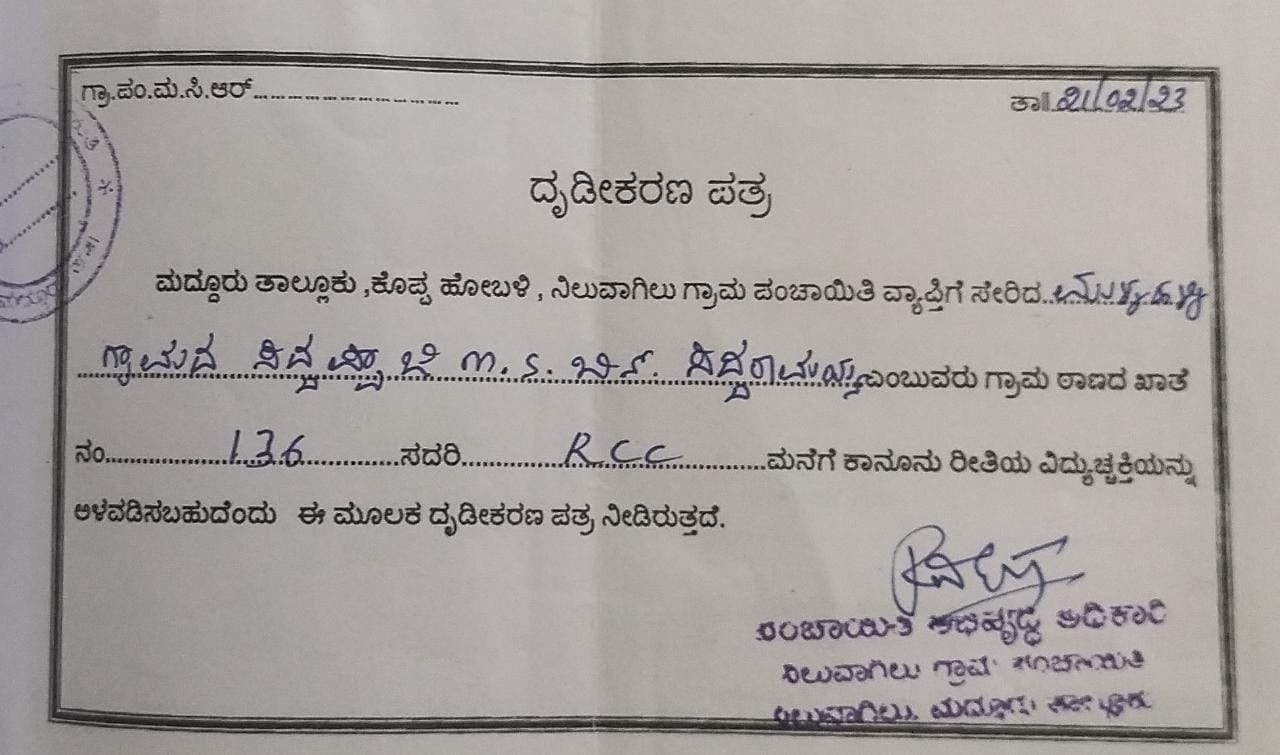 ಗ್ರಾ.ಪಂ.ಮ.ಸಿ.ಆರ್............................
ತಾ॥ 21/02/23
ದೃಡೀಕರಣ ಪತ್ರ
ಮದ್ದೂರು ತಾಲ್ಲೂಕು ,ಕೊಪ್ಪ ಹೋಬಳಿ , ನಿಲುವಾಗಿಲು ಗ್ರಾಮ ಪಂಚಾಯಿತಿ ವ್ಯಾಪ್ತಿಗೆ ಸೇರಿದ..
ಗ್ರಾಮದ ಸಿದ್ದಪ್ಪಾಜಿ ಎಂಬುವರು ಗ್ರಾಮ ಠಾಣದ ಖಾತೆ
ನಂ.................136.............ಸದರಿ...............RCC...............ಮನೆಗೆ ಕಾನೂನು ರೀತಿಯ ವಿದ್ಯುಚ್ಚಕ್ತಿಯನ್ನು
ಅಳವಡಿಸಬಹುದೆಂದು ಈ ಮೂಲಕ ದೃಡೀಕರಣ ಪತ್ರ ನೀಡಿರುತ್ತದೆ.
ಪಂಚಾಯಿತಿ ಅಭಿವೃದ್ಧಿ ಅಧಿಕಾರಿ
ನಿಲುವಾಗಿಲು ಗ್ರಾಮ ಪಂಚಾಯಿತಿ
ನಿಲುವಾಗಿಲು, ಮದ್ದೂರು ತಾಲ್ಲೂಕು